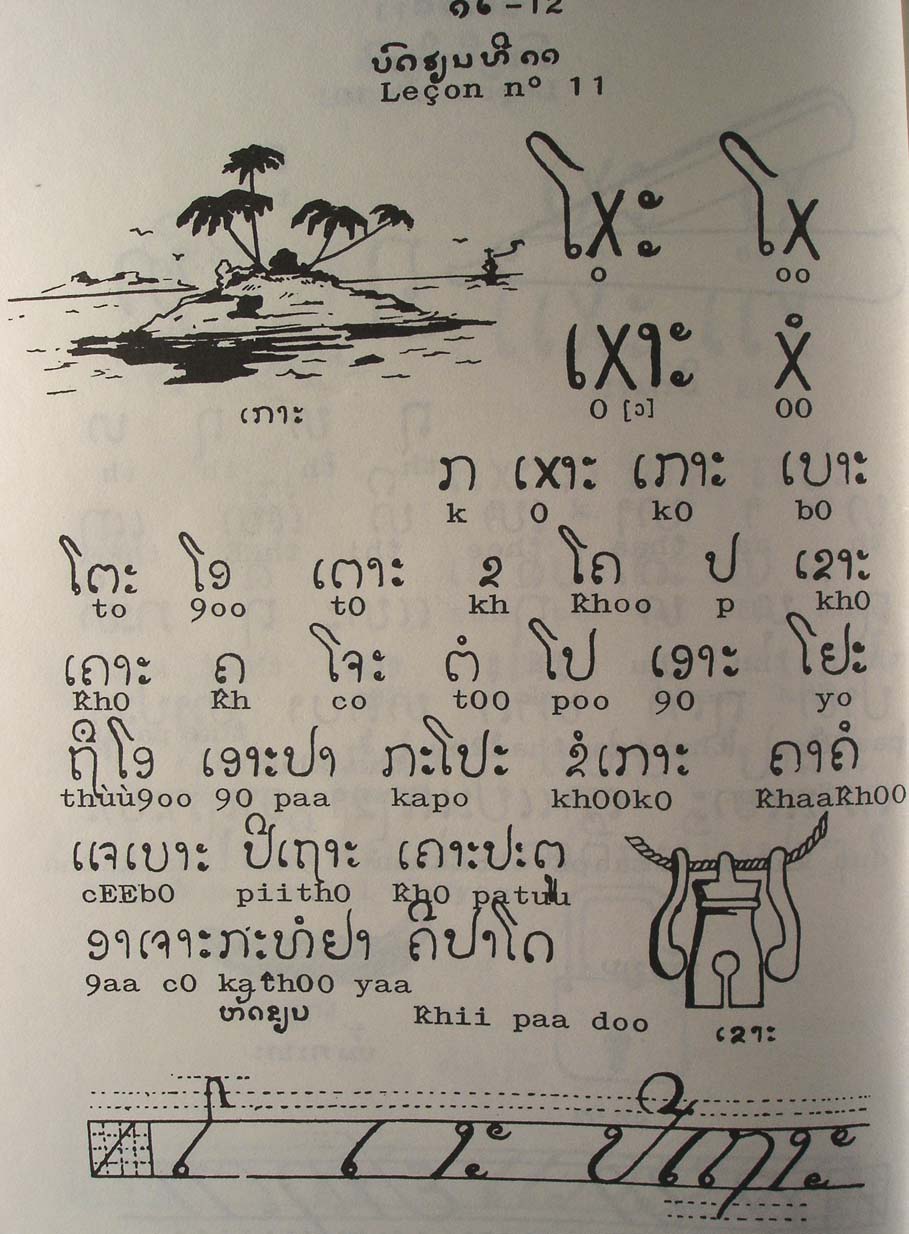 ໑໒ -12
ບົດຮຽນທີ ໑໑
Leçon nº 11
ໂxະ ໂx
o oo
ເxາະ xໍ
O [ɔ] OO
ເກາະ
ກ ເxາະ ເກາະ ເບາະ
k O kO bO
ໂຕະ ໂອ ເຕາະ ຂ ໂຄ ປ ເຂາະ
to 9oo tO kh Khoo p khO
ເຄາະ ຄ ໂຈະ ຕໍ ໂປ ເອາະ ໂຢະ
KhO Kh co tOO poo 9O yo
ຖືໂອ ເອາະປາ ກະໂປະ ຂໍເກາະ ຄາຄໍ
thùù9oo 9O paa kapo khOOkO KhaaKhOO
ແຈເບາະ ປີເຖາະ ເຄາະປະຕູ
cEEbO piithO KhO patuu
ອາເຈາະກະທໍຢາ ຄີປາໂດ
9aa cO kathOO yaa
Khii paa doo
ຫັດຂຽນ
ເຂາະ
ໂ ເ າະ ປີເຖາະ